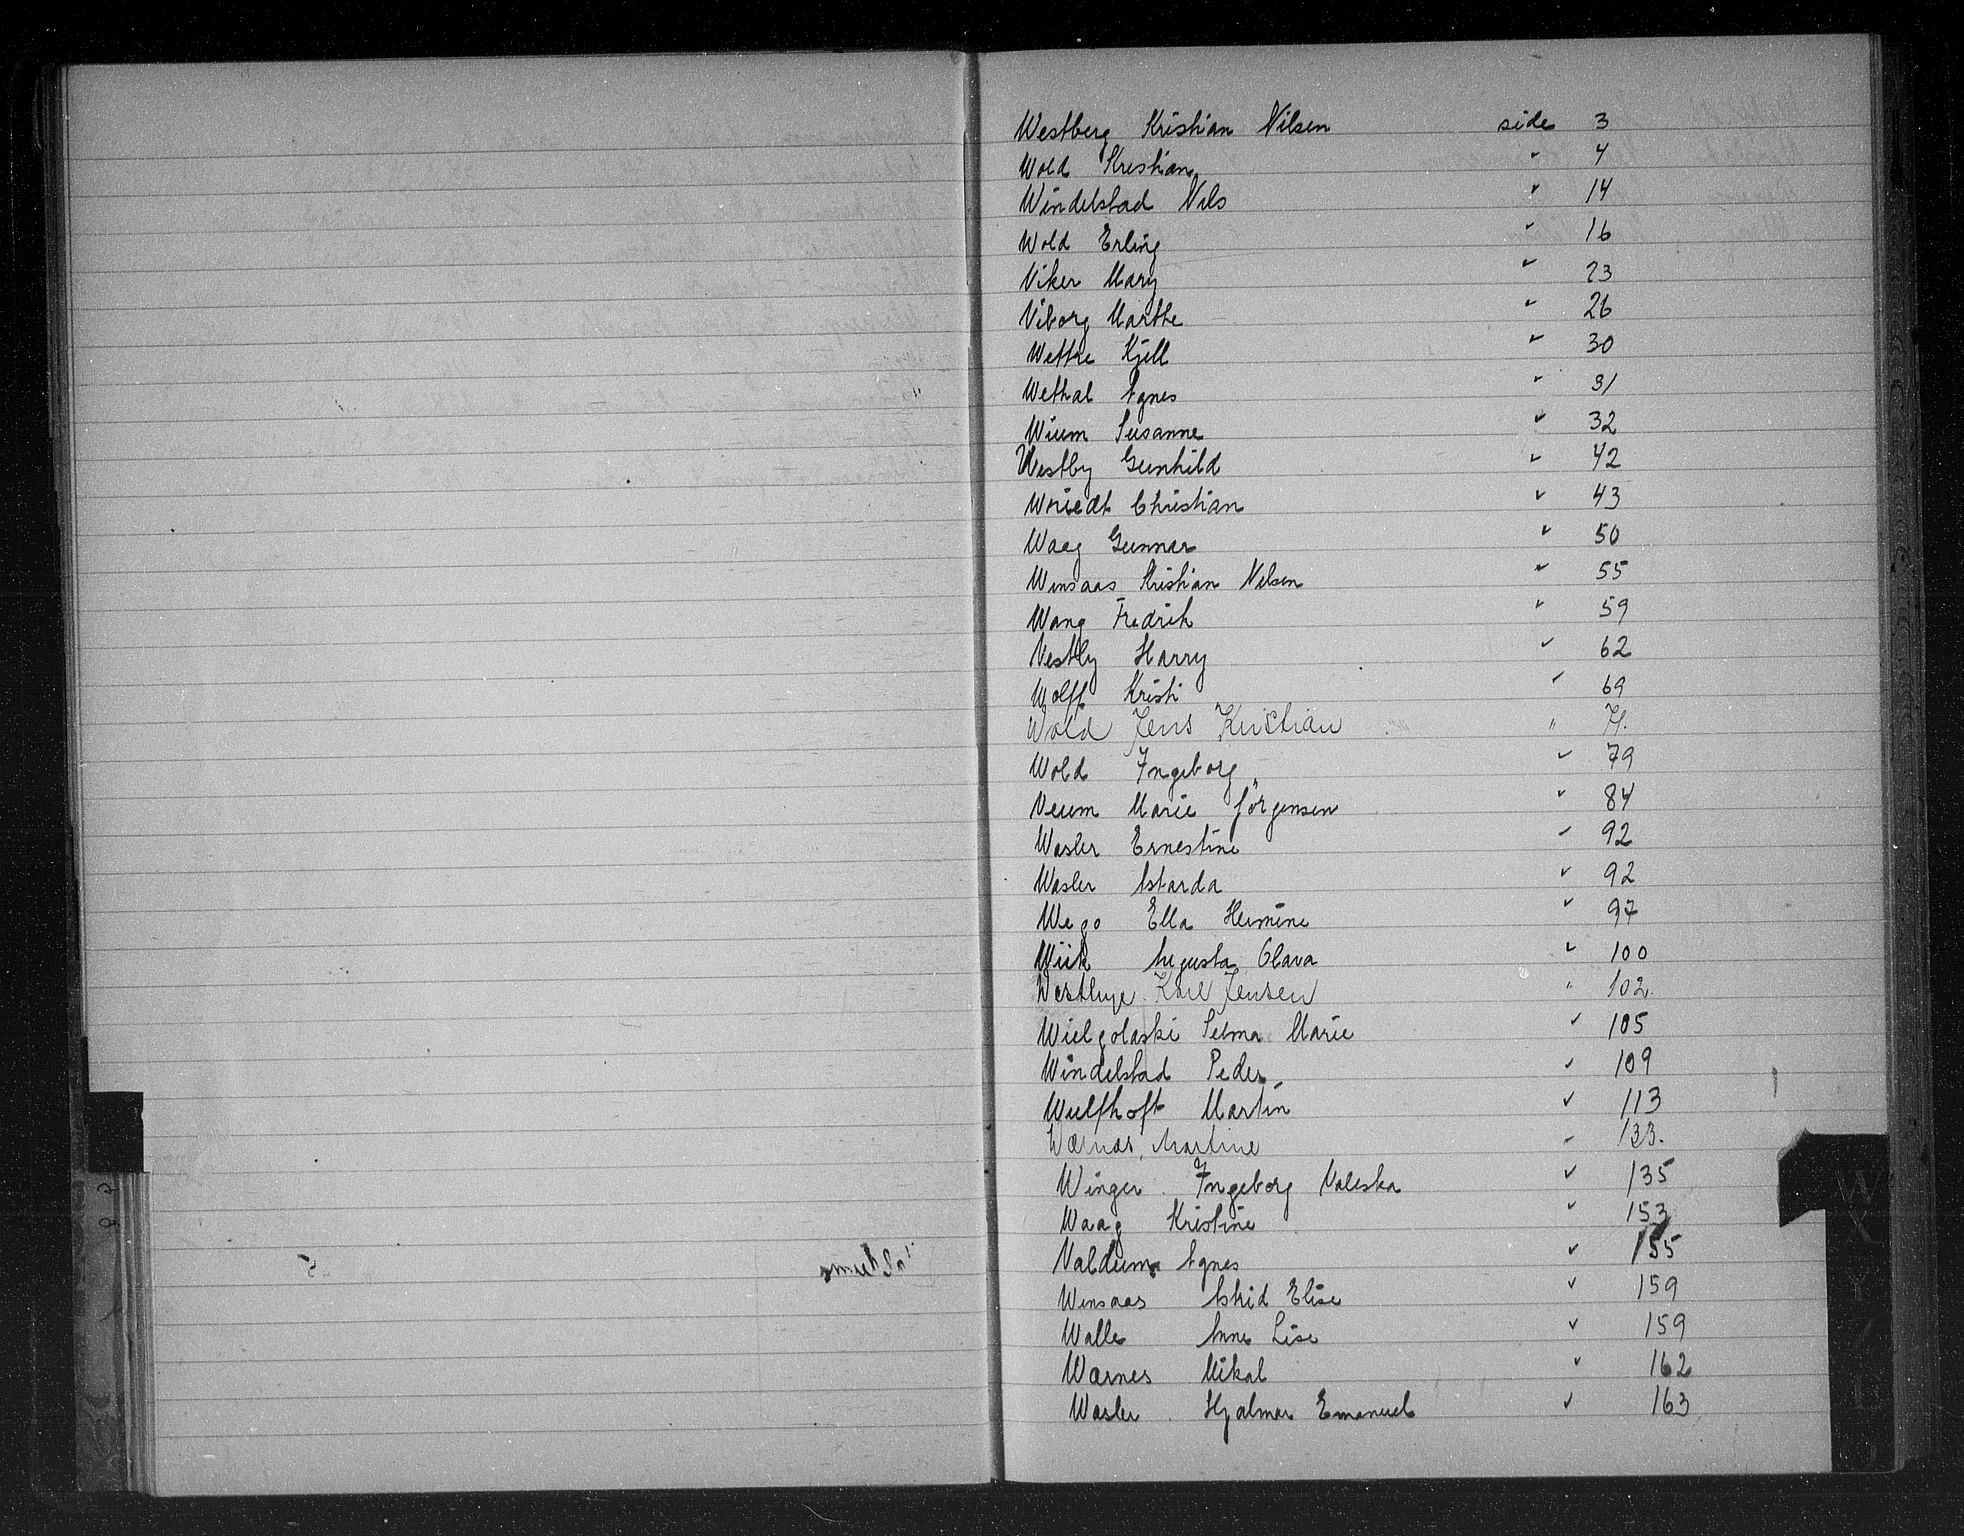 Westberg Kristian Nilsen side 3
Wold Kristian " 4
Windelstad Nils " 14
Wold Erling " 16
Viker Mary " 23
Viborg Marthe " 26
Wettre Kjell " 30
Wethal Agnes " 31
Wium Susanne " 32
Westby Gunhild " 42
Woriedt Christian " 43
Waag Gunnar " 50
Winsaas Kristian Nilsen " 55
Wang Fredrik " 59
Vestby Harry " 62
Wolff Kristi " 69
Wold Jens Kristian " 71.
Wold Ingeborg " 79
Veum Marie Jörgensen " 84
Wasler Ernestine " 92
Wasler Astarda " 92
Wego Ella Hermine " 97
Wiik Augusta Olava " 100
Karl Jensen " 102.
Wielgolaski Selma Marie " 105
Windelstad Peder " 109
Wulfhoft Martin " 113
Wærnes, Martine " 133.
Winger Ingeborg Valeska " 135
Waag Kristine " 153
Valdum Agnes " 155
Winsaas Astrid Elise " 159
Walle Anne Lise " 159
Wærnes Mikal " 162
Wasler Hjalmar Emanuel " 163
W
X
Y